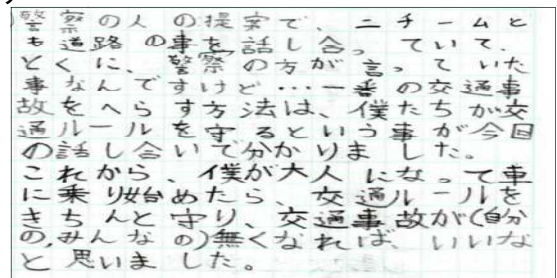 警察の人の提案で、ニチームと
も道路の事を話し合っていて、
とくに、警察の方が言っていた
事なんですけど…一番の交通事
故をへらす方法は、僕たちが交
通ルールを守るという事が今回
の話し合いで分かりました。
これから、僕が大人になって車
に乗り始めたら、交通ルールを
きちんと守り、交通事故が(自分
の,みんなの)無くなれば、いいな
と思いました。